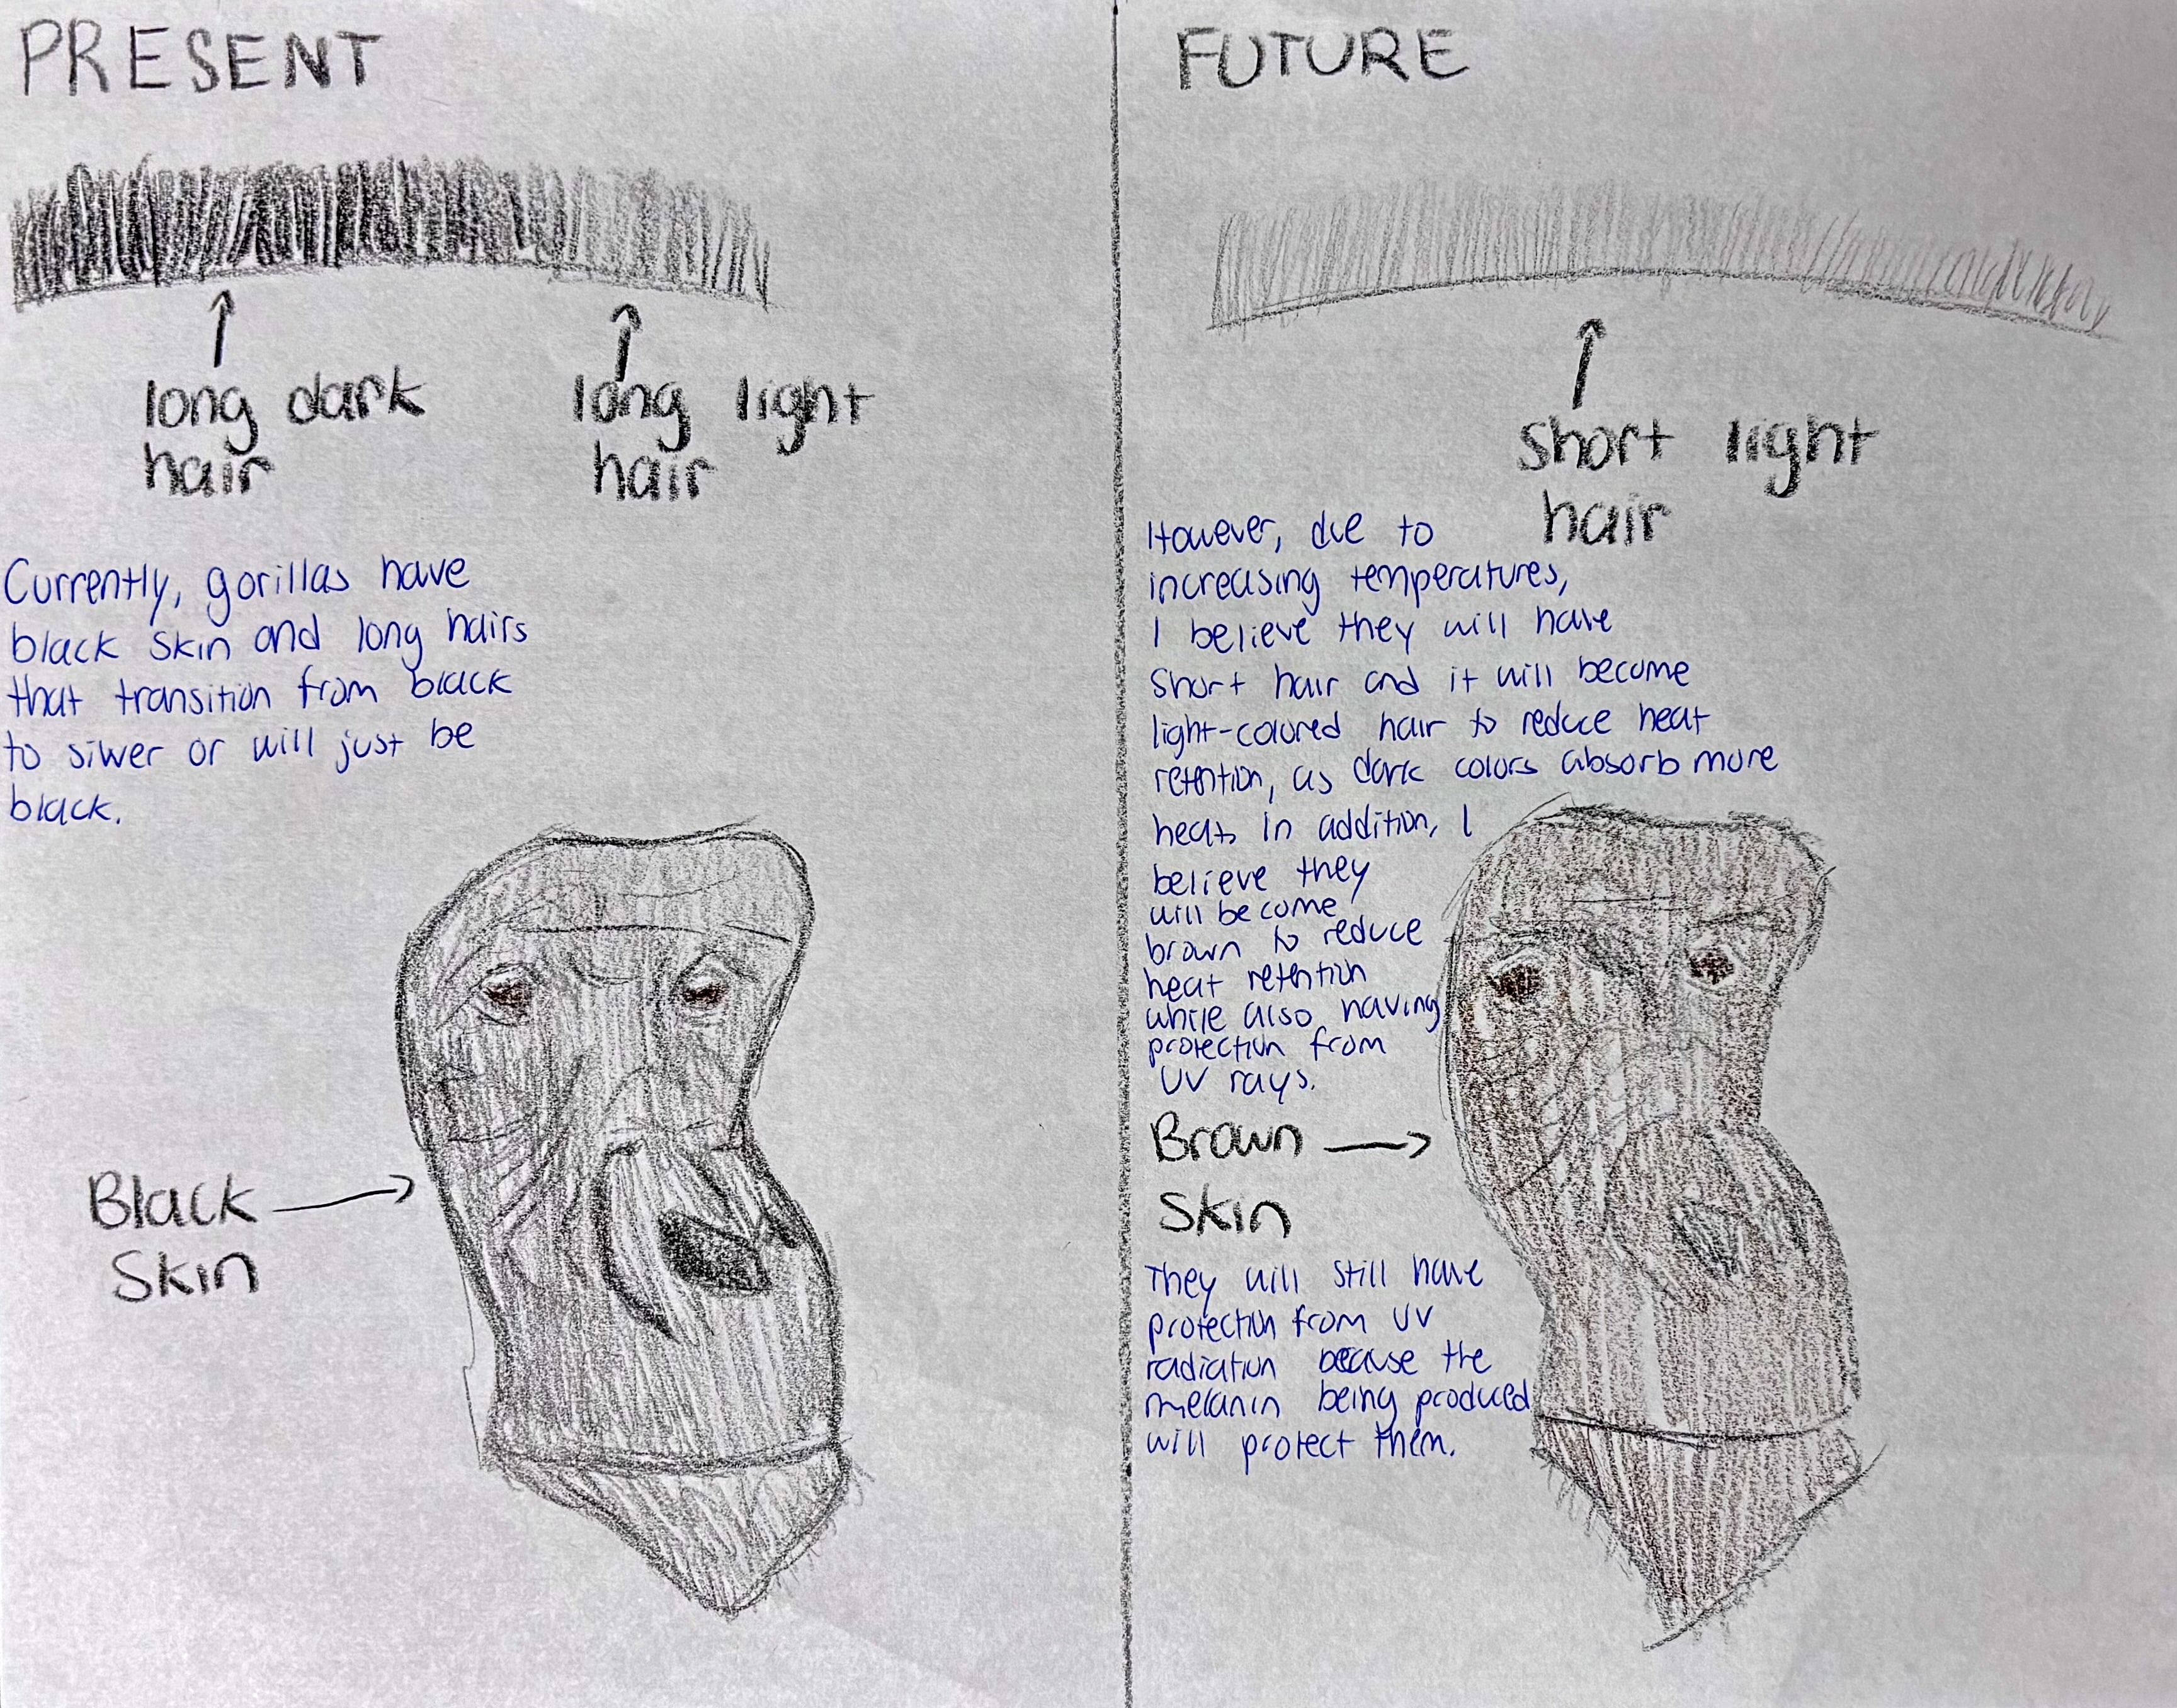 PRESENT
long dark
hair
long light
hair
Currently, gorillas have
black skin and long hairs
that transition from black
to silver or will just be
black.
Black
Skin
FUTURE
short light
hair
However, due to
increasing temperatures,
I believe they will have
short hair and it will become
light-colored hair to reduce heat
retention, as dark colors absorb more
heat. In addition, I
believe they
will become
brown to reduce
heat retention
while also having
protection from
UV rays.
Brown
Skin
They will still have
protection from UV
radiation because the
melanin being produced
will protect them.